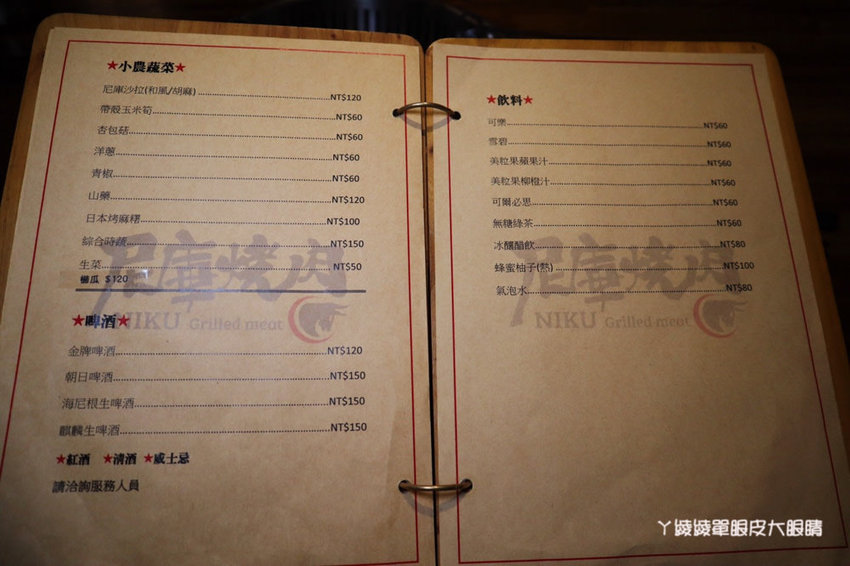 ★小農蔬菜★
尼庫沙拉(和風/胡麻) NT$120
帶殼玉米筍 NT$60
杏包菇 NT$60
洋蔥 NT$60
青椒 NT$60
山藥 NT$120
日本烤麻糬 NT$100
綜合時蔬 NT$150
生菜 NT$50
櫛瓜 $120
尼庫燒肉
NIKU Grilled meat
★啤酒★
金牌啤酒 NT$120
朝日啤酒 NT$150
海尼根生啤酒 NT$150
麒麟生啤酒 NT$150
★紅酒 ★清酒 ★威士忌
請洽詢服務人員
★飲料★
可樂 NT$60
雪碧 NT$60
美粒果蘋果汁 NT$60
美粒果柳橙汁 NT$60
可爾必思 NT$60
無糖綠茶 NT$60
冰釀醋飲 NT$80
蜂蜜柚子(熱) NT$100
氣泡水 NT$80
尼庫燒肉
NIKU Grilled meat
ㄚ綾綾單眼皮大眼睛